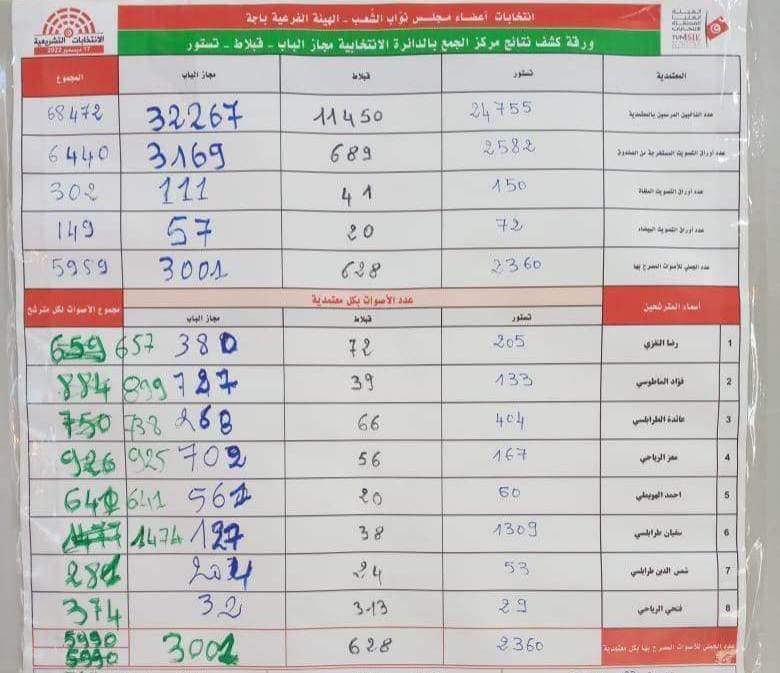 انتخابات أعضاء مجلس نوّاب الشّعب - الهيئة الفرعية بباجة
ورقة كشف نتائج مركز الجمع بالدائرة الانتخابية مجاز الباب - قبلاط - تستور
الهيئة العليا المستقلة للانتخابات
TUNISIE
الانتخابات التشريعية
17 ديسمبر 2022
المعتمدية تستور قبلاط مجاز الباب المجموع
عدد الناخبين المرسمين بالمعتمدية 24755 11450 32267 68472
عدد أوراق التصويت المستخرجة من الصندوق 2582 689 3169 6440
عدد أوراق التصويت الملغاة 150 41 111 302
عدد أوراق التصويت البيضاء 72 20 57 149
العدد الجملي للأصوات المصرح بها 2360 628 3001 5959
أسماء المترشحين عدد الأصوات بكل معتمدية مجموع الأصوات لكل مترشح
تستور قبلاط مجاز الباب
1 رضا 205 72 380 657 659
2 فؤاد 133 39 727 899 884
3 عائدة الطرابلسي 404 66 268 738 750
4 معز الرياحي 167 56 702 925 926
5 احمد 60 20 561 641 641
6 سفيان طرابلسي 1309 38 127 1474 1477
7 شمس الدين طرابلسي 53 24 204 281
8 فتحي الرياحي 29 313 32 374
العدد الجملي للأصوات المصرح بها بكل معتمدية 2360 628 3001 5990
5990